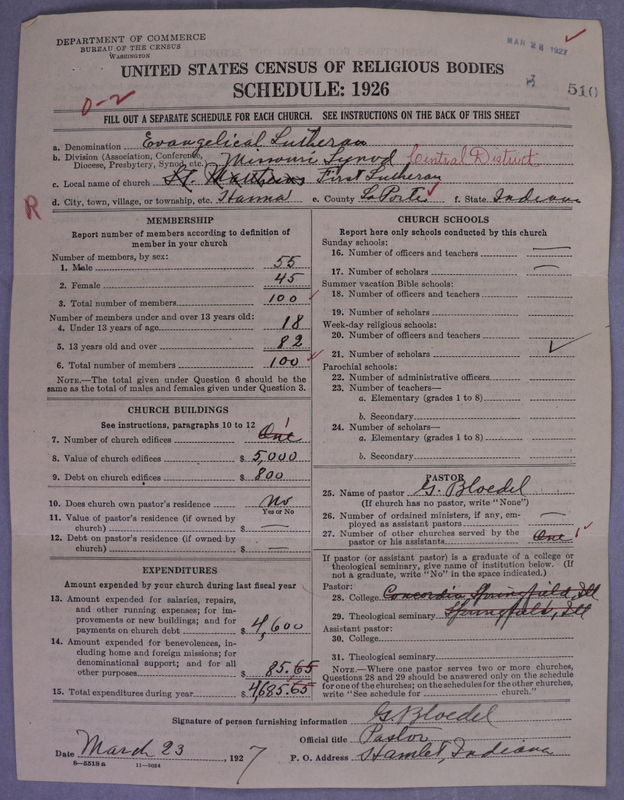 DEPARTMENT OF COMMERCE
BUREAU OF THE CENSUS
WASHINGTON
MAR 28 1927
510
UNITED STATES CENSUS OF RELIGIOUS BODIES
SCHEDULE: 1926
0-2
FILL OUT A SEPARATE SCHEDULE FOR EACH CHURCH. SEE INSTRUCTIONS ON THE BACK OF THIS SHEET
a. Denomination Evangelical Lutheran
b. Division (Association, Conference, Diocese, Presbytery, Synod, etc.) Missouri Synod Central District
c. Local name of church St. Matthews First Lutheran
R
d. City, town, village, or township, etc. Hanna e. County LaPorte f. State Indiana
MEMBERSHIP
Report number of members according to definition of
member in your church
Number of members, by sex:
1. Male 55
2. Female 45
3. Total number of members 100
Number of members under and over 13 years old:
4. Under 13 years of age 18
5. 13 years old and over 82
6. Total number of members 100
NOTE.—The total given under Question 6 should be the
same as the total of males and females given under Question 3.
CHURCH BUILDINGS
See instructions, paragraphs 10 to 12
7. Number of church edifices One 1
8. Value of church edifices $ 5,000
9. Debt on church edifices $ 800
10. Does church own pastor's residence No
Yes or No
11. Value of pastor's residence (if owned by
church) $ —
12. Debt on pastor's residence (if owned by
church) $ —
EXPENDITURES
Amount expended by your church during last fiscal year
13. Amount expended for salaries, repairs,
and other running expenses; for im-
provements or new buildings; and for
payments on church debt $ 4,600
14. Amount expended for benevolences, in-
cluding home and foreign missions; for
denominational support; and for all
other purposes $ 85.65
15. Total expenditures during year $ 4,685.65
CHURCH SCHOOLS
Report here only schools conducted by this church
Sunday schools:
16. Number of officers and teachers —
17. Number of scholars —
Summer vacation Bible schools:
18. Number of officers and teachers
19. Number of scholars
Week-day religious schools:
20. Number of officers and teachers
21. Number of scholars
Parochial schools:
22. Number of administrative officers
23. Number of teachers—
a. Elementary (grades 1 to 8)
b. Secondary
24. Number of scholars—
a. Elementary (grades 1 to 8)
b. Secondary
PASTOR
25. Name of pastor G. Bloedel
(If church has no pastor, write "None")
26. Number of ordained ministers, if any, em-
ployed as assistant pastors —
27. Number of other churches served by the
pastor or his assistants One 1
If pastor (or assistant pastor) is a graduate of a college or
theological seminary, give name of institution below. (If
not a graduate, write "No" in the space indicated.)
Pastor:
28. College Concordia, Springfield, Ill
29. Theological seminary Springfield, Ill
Assistant pastor:
30. College
31. Theological seminary
NOTE.—Where one pastor serves two or more churches,
Questions 28 and 29 should be answered only on the schedule
for one of the churches; on the schedules for the other churches,
write "See schedule for church."
Signature of person furnishing information G. Bloedel
Official title Pastor
Date March 23, 1927 P. O. Address Hamlet, Indiana
8—5518a 11—9034